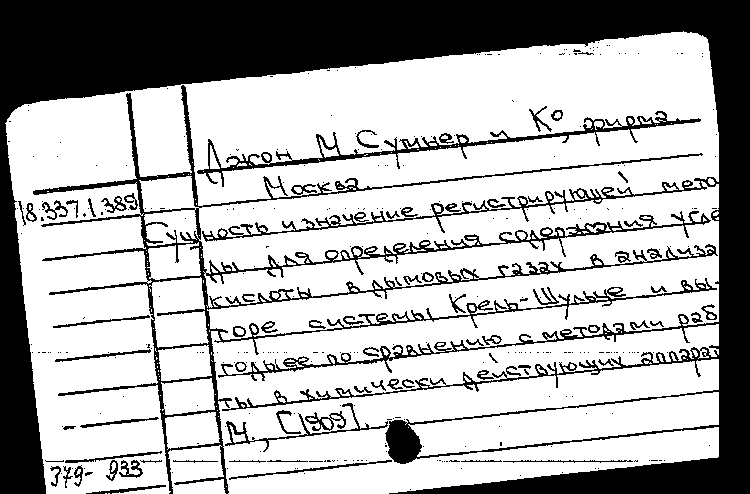 Джон М. Сумнер и К°, фирма.
Москва.
18.337.1.389
Сущность и значение регистрирующей мето
ды для определения содержания угле
кислоты в дымовых газах в анализа
торе системы Крель-Шульце и вы-
годы ее по сравнению с методами раб
ты в химически действующих аппарат
М., [1909].
379- 933